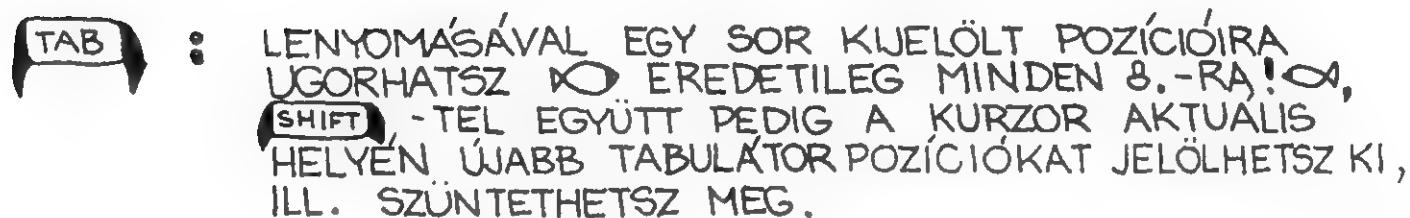 TAB : LENYOMÁSÁVAL EGY SOR KIJELÖLT POZÍCIÓIRA
UGORHATSZ EREDETILEG MINDEN 8.-RA! ,
SHIFT -TEL EGYÜTT PEDIG A KURZOR AKTUÁLIS
HELYÉN ÚJABB TABULÁTOR POZÍCIÓKAT JELÖLHETSZ KI,
ILL. SZÜNTETHETSZ MEG.